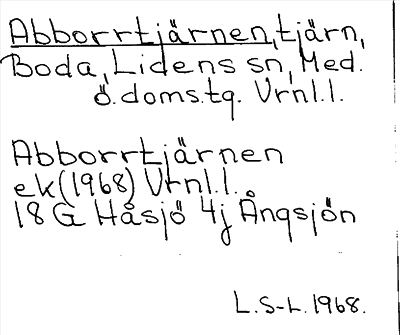 Abborrtjärnen, tjärn,
Boda, Lidens sn, Med.
ö. doms.tg. Vrnl.l.
Abborrtjärnen
ek(1968) Vrnl.l.
18 G Håsjö 4j Ångsjön
L.S-L. 1968.